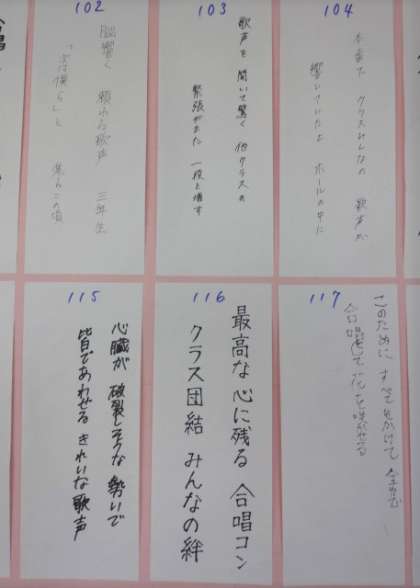 102
脳響く 頼れる歌声 三年生
と 焦るこの頃
103
歌声を 聞いて驚く 他クラスの
緊張がまた 一段と増す
104
本番で クラスみんなの 歌声が
響いていたよ ホールの中に
115
心臓が 破裂しそうな 勢いで
皆であわせる きれいな歌声
116
最高な 心に残る 合唱コン
クラス団結 みんなの絆
117
このために すべてをかけて
合唱して 花を咲かせる